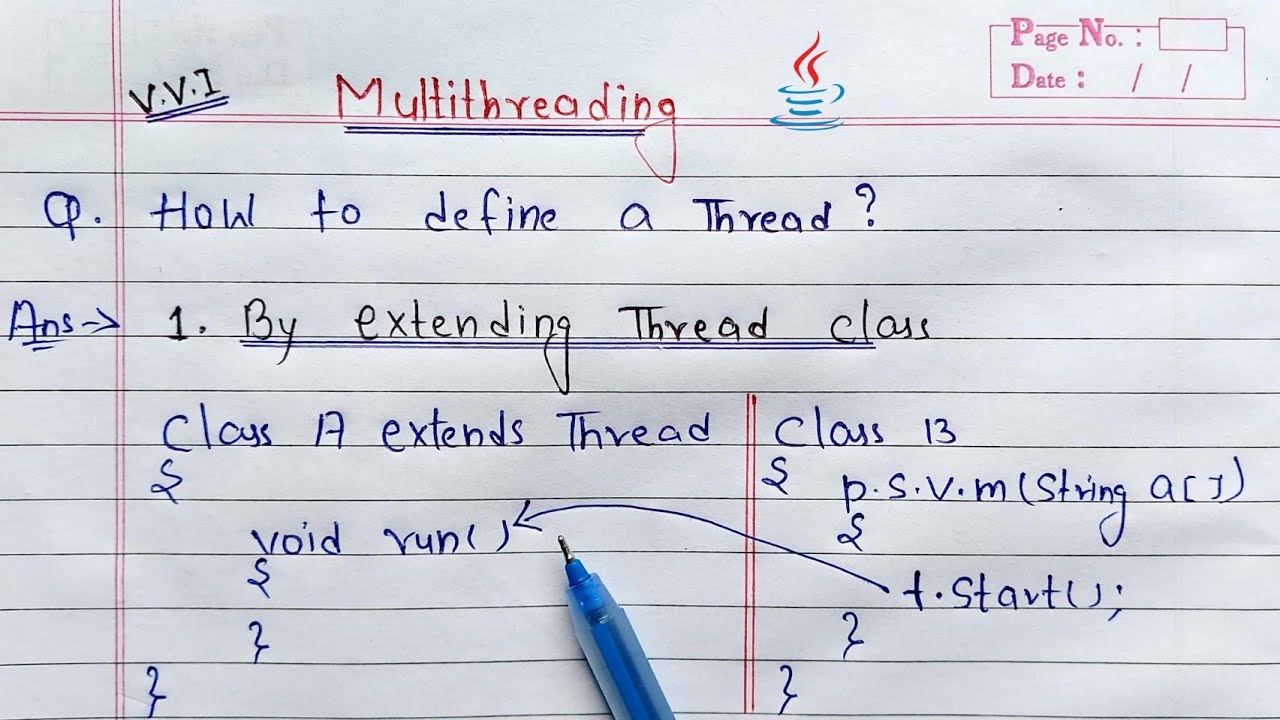 Page No. :
Date : / /
V.V.I Multithreading
Q. How to define a Thread?
Ans→ 1. By extending Thread class
Class A extends Thread
{
void run()
{
}
}
Class B
{
p.s.v.m(String a[])
{
t.Start();
}
}